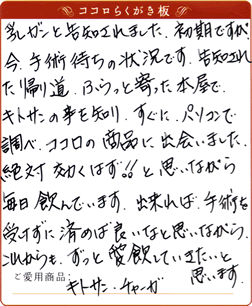 ココロらくがき板
乳ガンと告知されました。初期ですが
今、手術待ちの状況です。告知された
帰り道、ふらっと寄った本屋で、
キトサンの事を知り、すぐに、パソコンで
調べ、ココロの商品に出会いました。
絶対効くはず!!と思いながら
毎日飲んでいます。出来れば、手術を
受けずに済めば良いなと思いながら、
これからも、ずっと愛飲していきたいと
思います。
ご愛用商品:
キトサン・チャーガ